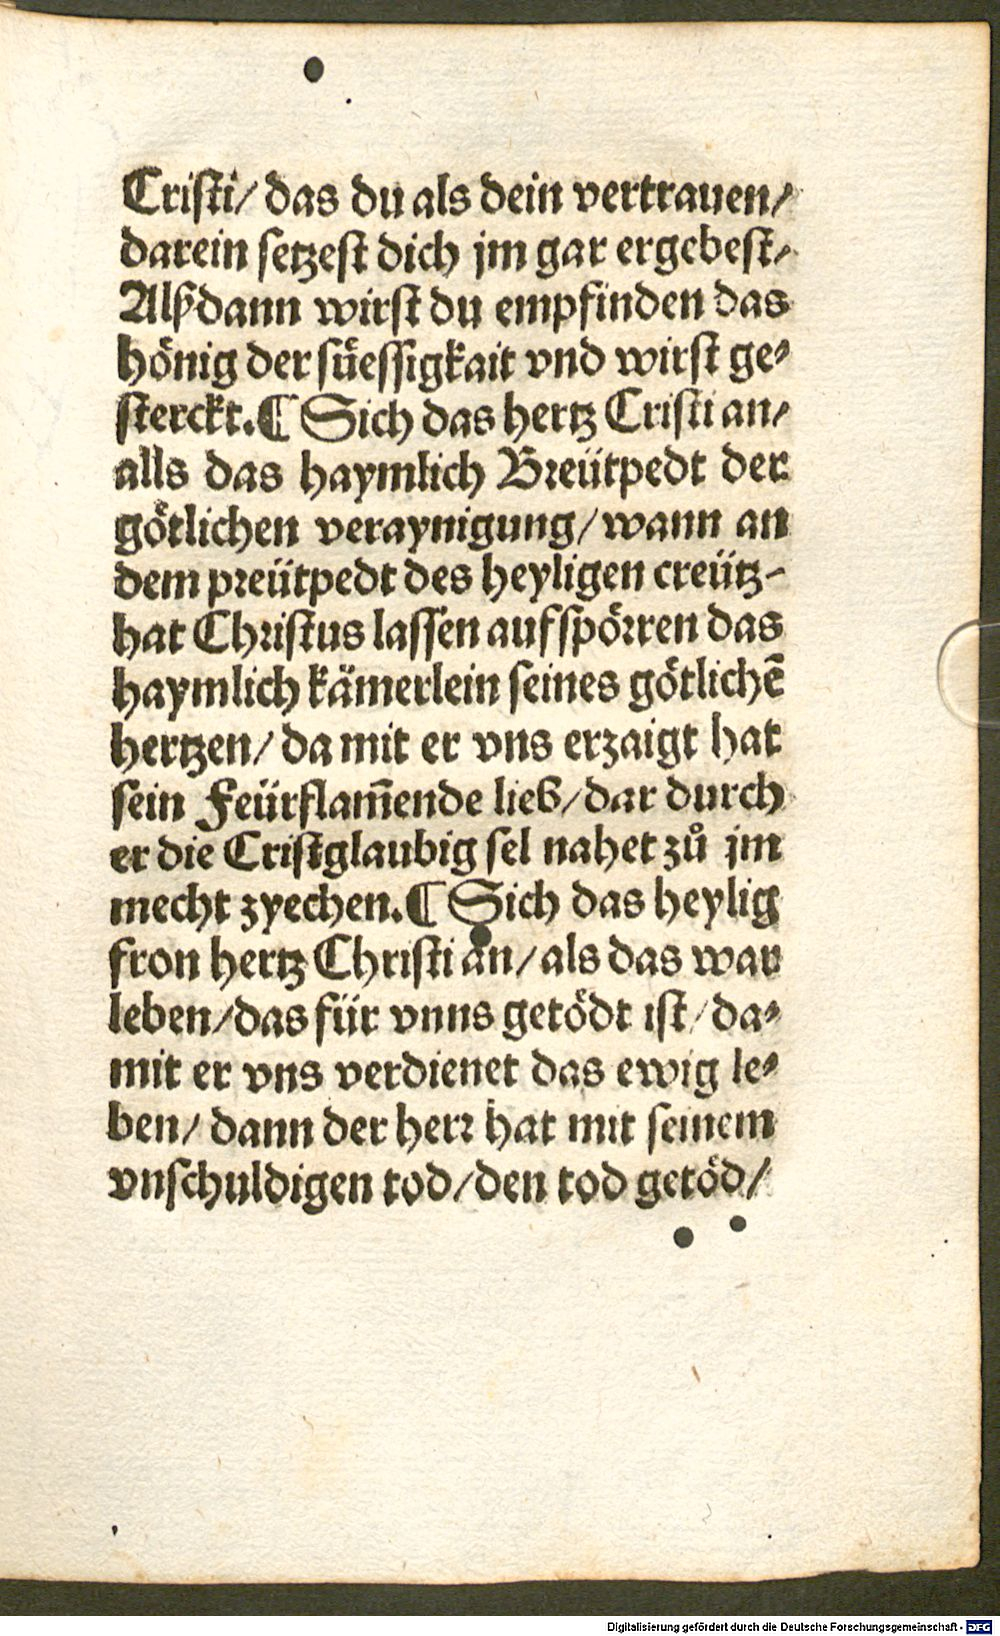 Cristi/ das du als dein vertrauen/
darein setzest dich jm gar ergebest/
Alßdann wirst du empfinden das
hönig der süessigkait vnd wirst ge⸗
sterckt.¶ Sich das hertz Cristi an/
alls das haymlich Breütpedt der
götlichen veraynigung/ wann an
dem preütpedt des heyligen creütz-
hat Christus lassen aufspörren das
haymlich kämerlein seines götlichē
hertzen/ da mit er vns erzaigt hat
sein Feürflam̄ende lieb/ dar durch
er die Cristglaubig sel nahet zů jm
mecht zyechen.¶ Sich das heylig
fron hertz Christi an/ als das war
leben/ das für vnns getödt ist/ da⸗
mit er vns verdienet das ewig le⸗
ben/ dann der herr hat mit seinem
vnschuldigen tod/ den tod getöd/
Digitalisierung gefördert durch die Deutsche Forschungsgemeinschaft - DFG